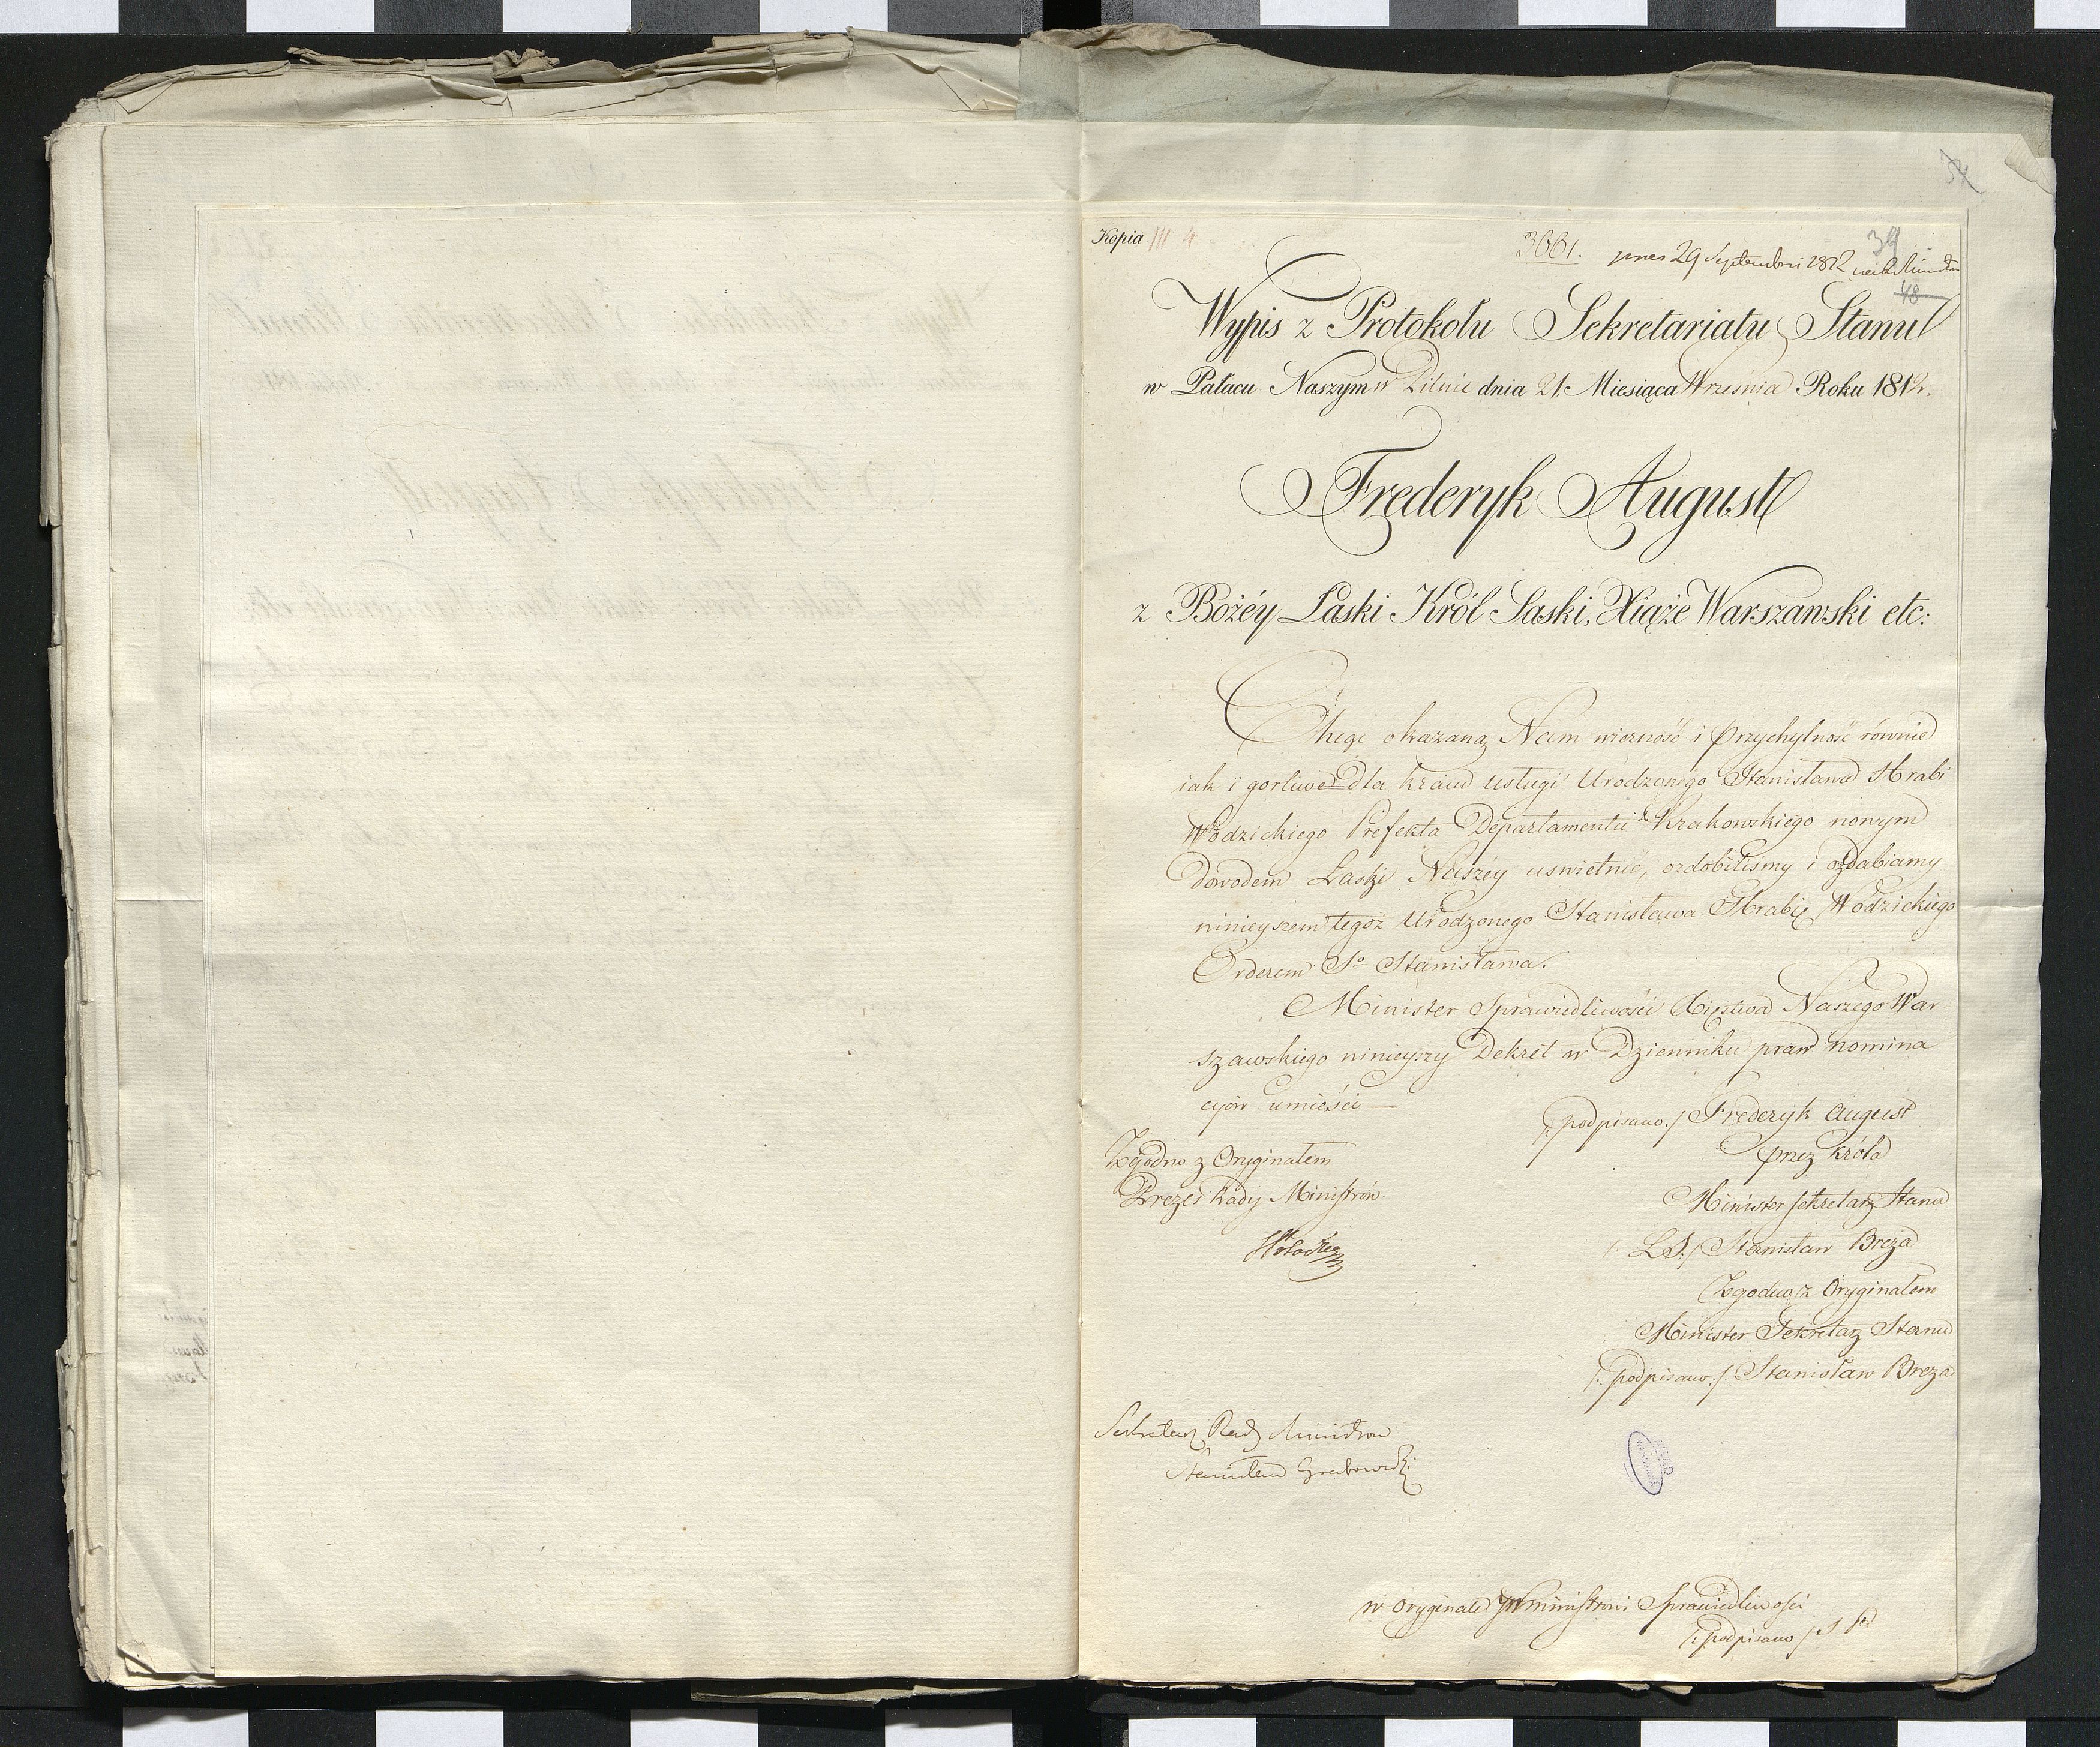 Kopia III 4
3661. pnes 29 Septembri 1812
39
48
Wypis z Protokołu Sekretariatu Stanu
w Pałacu Naszym w Pilnie dnia 21. Miesiąca Września Roku 1812.
Frederyk August
z Bożéy Łaski Król Saski, Xiąże Warszawski etc:
Chcąc okazaną Nam wierność i przychylność równie
iak i gorliwe dla kraiu usługi Urodzonego Stanisława Hrabi
Wodzickiego Prefekta Departamentu Krakowskiego nowym
dowodem Łaski Naszéy uswietnić, ozdobiliśmy i ozdabiamy
ninieyszem tegoż Urodzonego Stanisława Hrabię Wodzickiego
Orderem So Stanisława.
Minister Sprawiedliwości Xięztwa Naszego War
szawskiego ninieyszy Dekret w Dzienniku praw nomina
cyów umieści —
/: podpisano :/ Frederyk August
przez Króla
Minister Sekretarz Stanu
L.S. / Stanisław Breza
Zgodno z Oryginałem
Minister Sekretarz Stanu
/: podpisano :/ Stanisław Breza
Zgodno z Oryginałem
Prezes Rady Ministrów
Sekretarz Rady Ministrów
Stanisław Grabowski
w Oryginale JW Ministrowi Sprawiedliwości
/: podpisano /